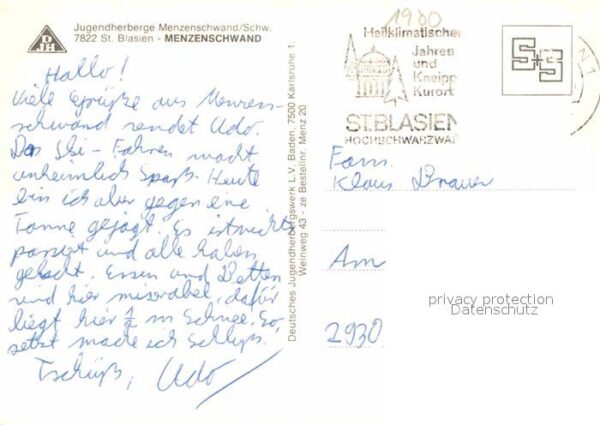 Jugendherberge Menzenschwand/Schw.
7822 St. Blasien - MENZENSCHWAND
DJH
Hallo!
Viele Grüße aus Menzen-
schwand sendet Udo.
Das Ski-Fahren macht
unheimlich Spaß. Heute
bin ich aber gegen eine
Tanne gejagt. Es ist nichts
passiert und alle haben
gelacht. Essen und Betten
sind hier miserabel, dafür
liegt hier ½ m Schnee. So,
jetzt mache ich Schluß.
Tschüß, Udo
Deutsches Jugendherbergswerk L.V. Baden, 7500 Karlsruhe 1,
Weinweg 43 - ze Bestellnr. Menz 20
1980
Heilklimatischer
Jahres
und
Kneipp
Kurort
ST.BLASIEN
HOCHSCHWARZWAL
S+S
Fam.
Klaus Brauer
Am
2930
privacy protection
Datenschutz